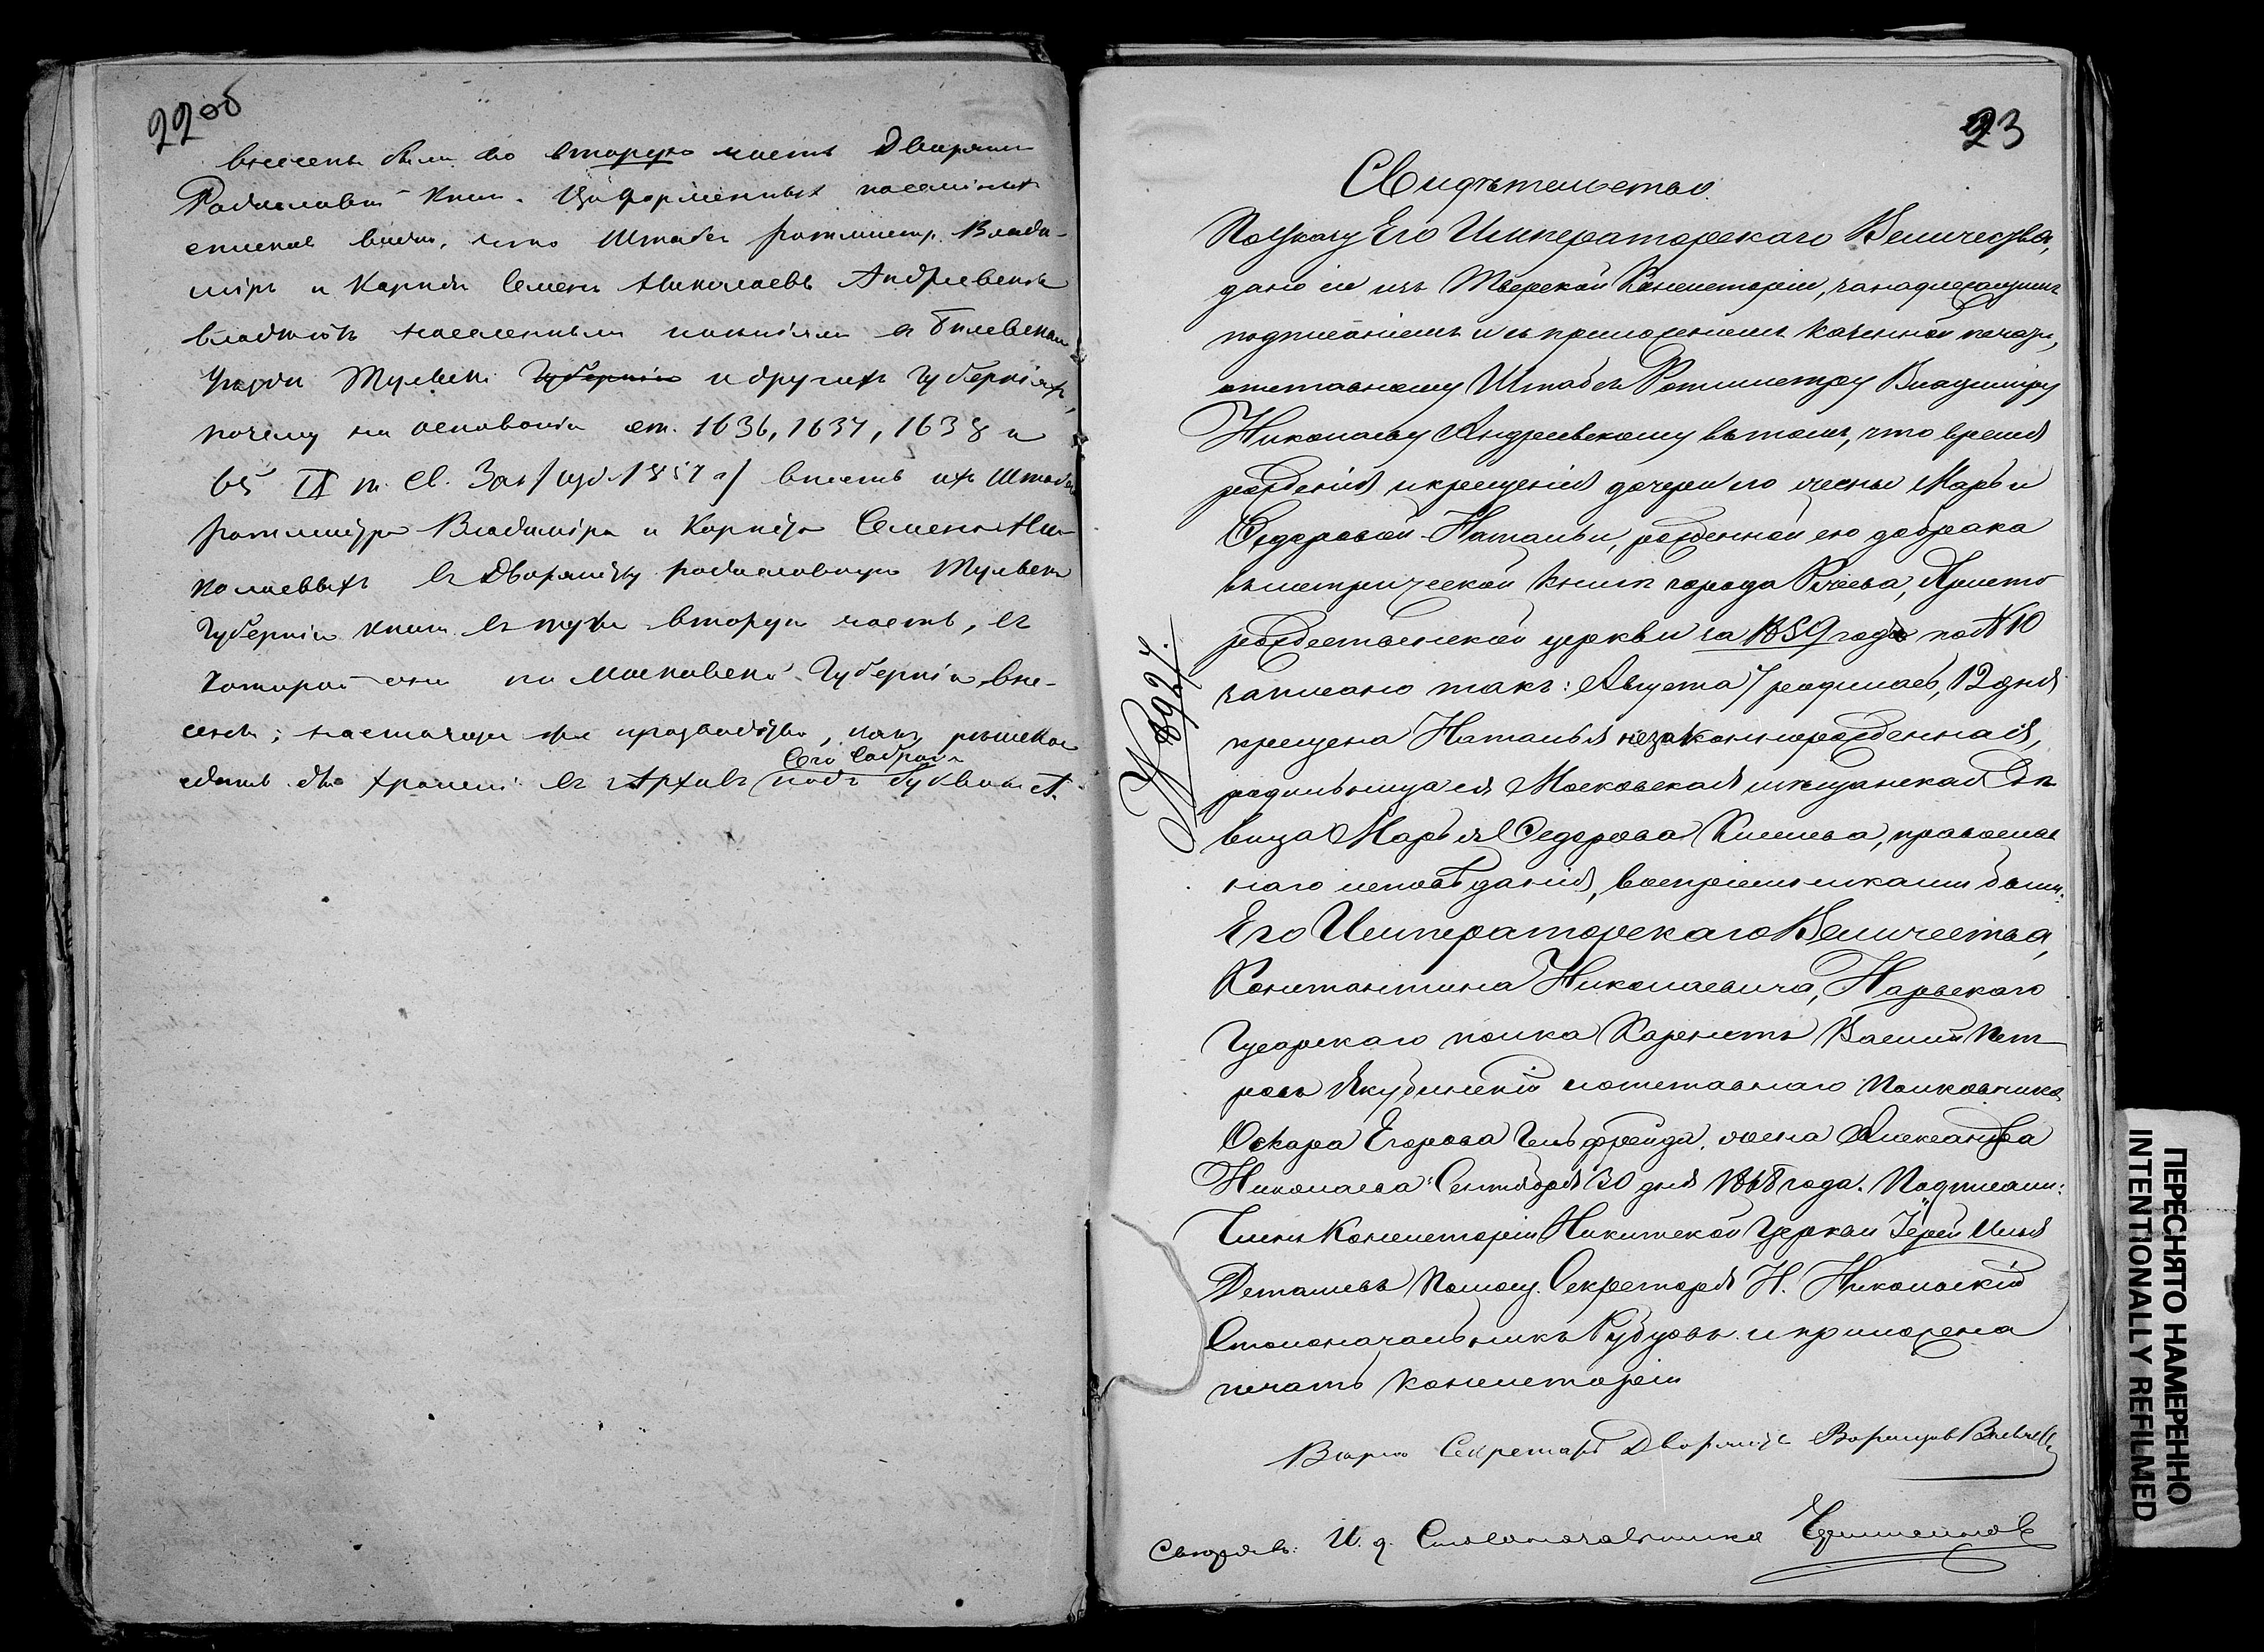 22 об
внесены были во вторую часть Дворян
Родословной Книги. Из форменныхъ
списковъ видно, что Штабсъ ротмистр. Влади-
міръ и Корнетъ Семенъ Николаевы Андреевскіе
владѣютъ населенными имѣніями въ Бѣлевскомъ
Уѣздѣ Тульской Губерніи и другихъ Губерніяхъ,
почему на основаніи ст. 1636, 1637, 1638 и
IX т. Св. Зак. /изд. 1857 г/ внесть ихъ Штабсъ
ротмистра Владиміра и Корнета Семена Ни-
колаевыхъ въ Дворянскую родословную Тульской
Губерніи книгу въ туже вторую часть, въ
которой они по Московской Губерніи вне-
сены; настоящее же производство, какъ рѣшеное
сдать для храненія въ Архивъ подъ буквою А.
Сего Собранія
23
Свидѣтельство.
По Указу Его Императорскаго Величества,
дано сіе изъ Тверской Консисторіи, за надлежащимъ
подписаніемъ и съ приложеніемъ казенной печати,
отставному Штабсъ Ротмистру Владиміру
Николаеву Андреевскому въ томъ, что время
рожденія и крещенія дочери его жены Марьи
Седоровой Натальи, рожденной ею до брака
въ метрической книгѣ города Ржева, Христо
рождественской церкви за 1859 годъ по № 10
записано такъ: Августа 7 родилась, 12 дня
крещена Наталья незаконнорожденная,
родительница ея Московская мѣщанская дѣ
вица Марья Седорова Киселева, православ
наго исповѣданія, воспріемниками были:
Его Императорскаго Величества,
Константина Николаевича, Нарвскаго
Гусарскаго полка Корнетъ Василій Пет
ровъ Якубинскій и отставнаго Полковника
Оскара Егорова жена Александра
Николаева. Сентября 30 дня 1868 года. Подписали:
Членъ Консисторіи Никитской Церкви Іерей Илья
Помощ. Секретаря Н. Никольскій
Столоначальникъ и приложена
печать консисторіи
№ 8927.
Вѣрно Секретарь Дворянства
Свѣрялъ: И. д. Столоначальника
ПЕРЕСНЯТО НАМЕРЕННО
INTENTIONALLY REFILMED